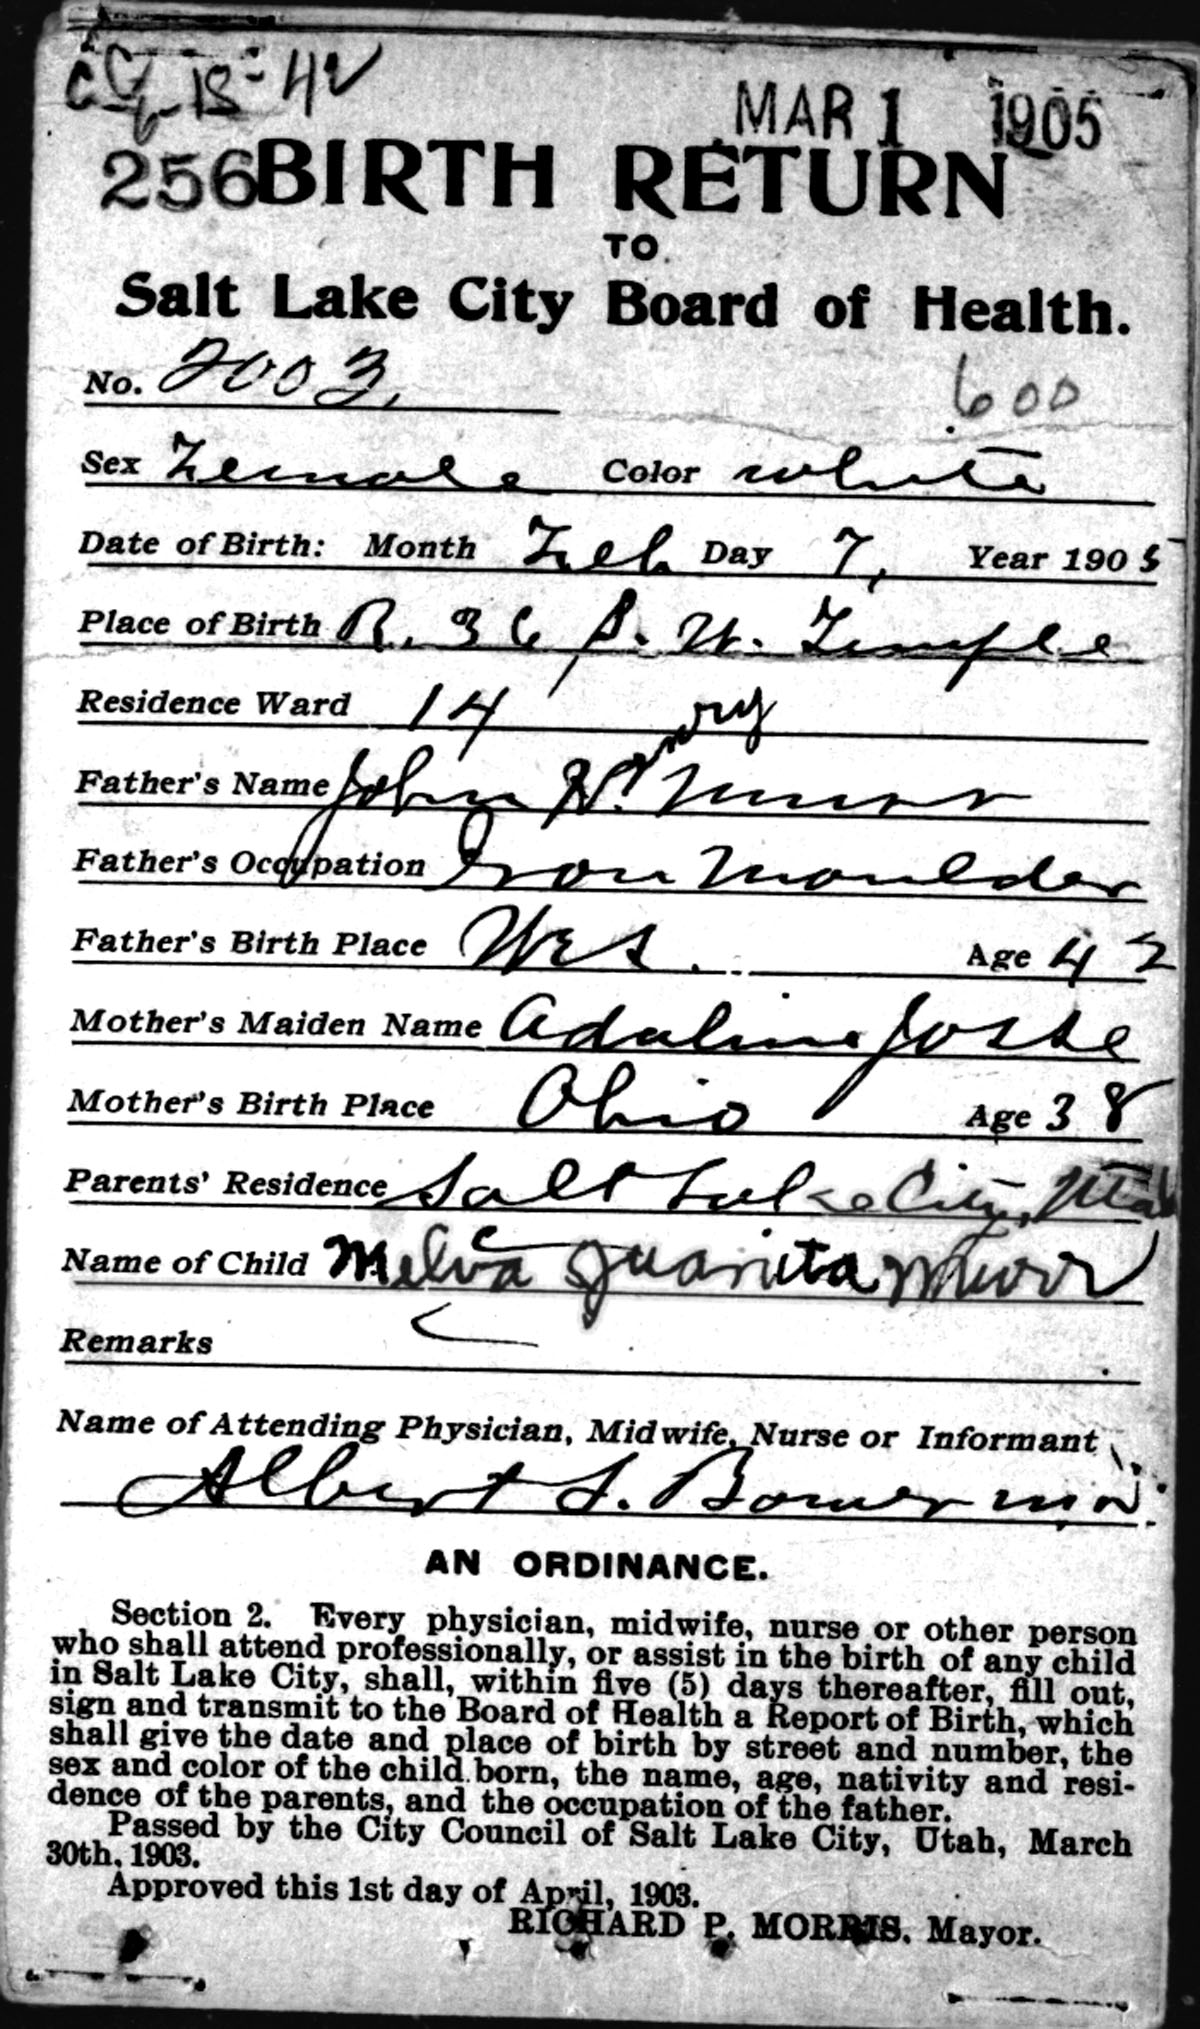 MAR 1 1905
256 BIRTH RETURN
TO
Salt Lake City Board of Health.
No. 2003,
600
Sex Female Color white
Date of Birth: Month Feb Day 7, Year 1905
Place of Birth R. 36 S. W. Temple
Residence Ward 14
Father's Name John H.
Father's Occupation Iron Moulder
Father's Birth Place Wis. Age 42
Mother's Maiden Name Adaline Josse
Mother's Birth Place Ohio Age 38
Parents' Residence Salt Lake City, Utah
Name of Child Melva Juanita
Remarks
Name of Attending Physician, Midwife, Nurse or Informant
Albert S. Bower M.D.
AN ORDINANCE.
Section 2. Every physician, midwife, nurse or other person
who shall attend professionally, or assist in the birth of any child
in Salt Lake City, shall, within five (5) days thereafter, fill out,
sign and transmit to the Board of Health a Report of Birth, which
shall give the date and place of birth by street and number, the
sex and color of the child born, the name, age, nativity and resi-
dence of the parents, and the occupation of the father.
Passed by the City Council of Salt Lake City, Utah, March
30th, 1903.
Approved this 1st day of April, 1903.
RICHARD P. MORRIS, Mayor.